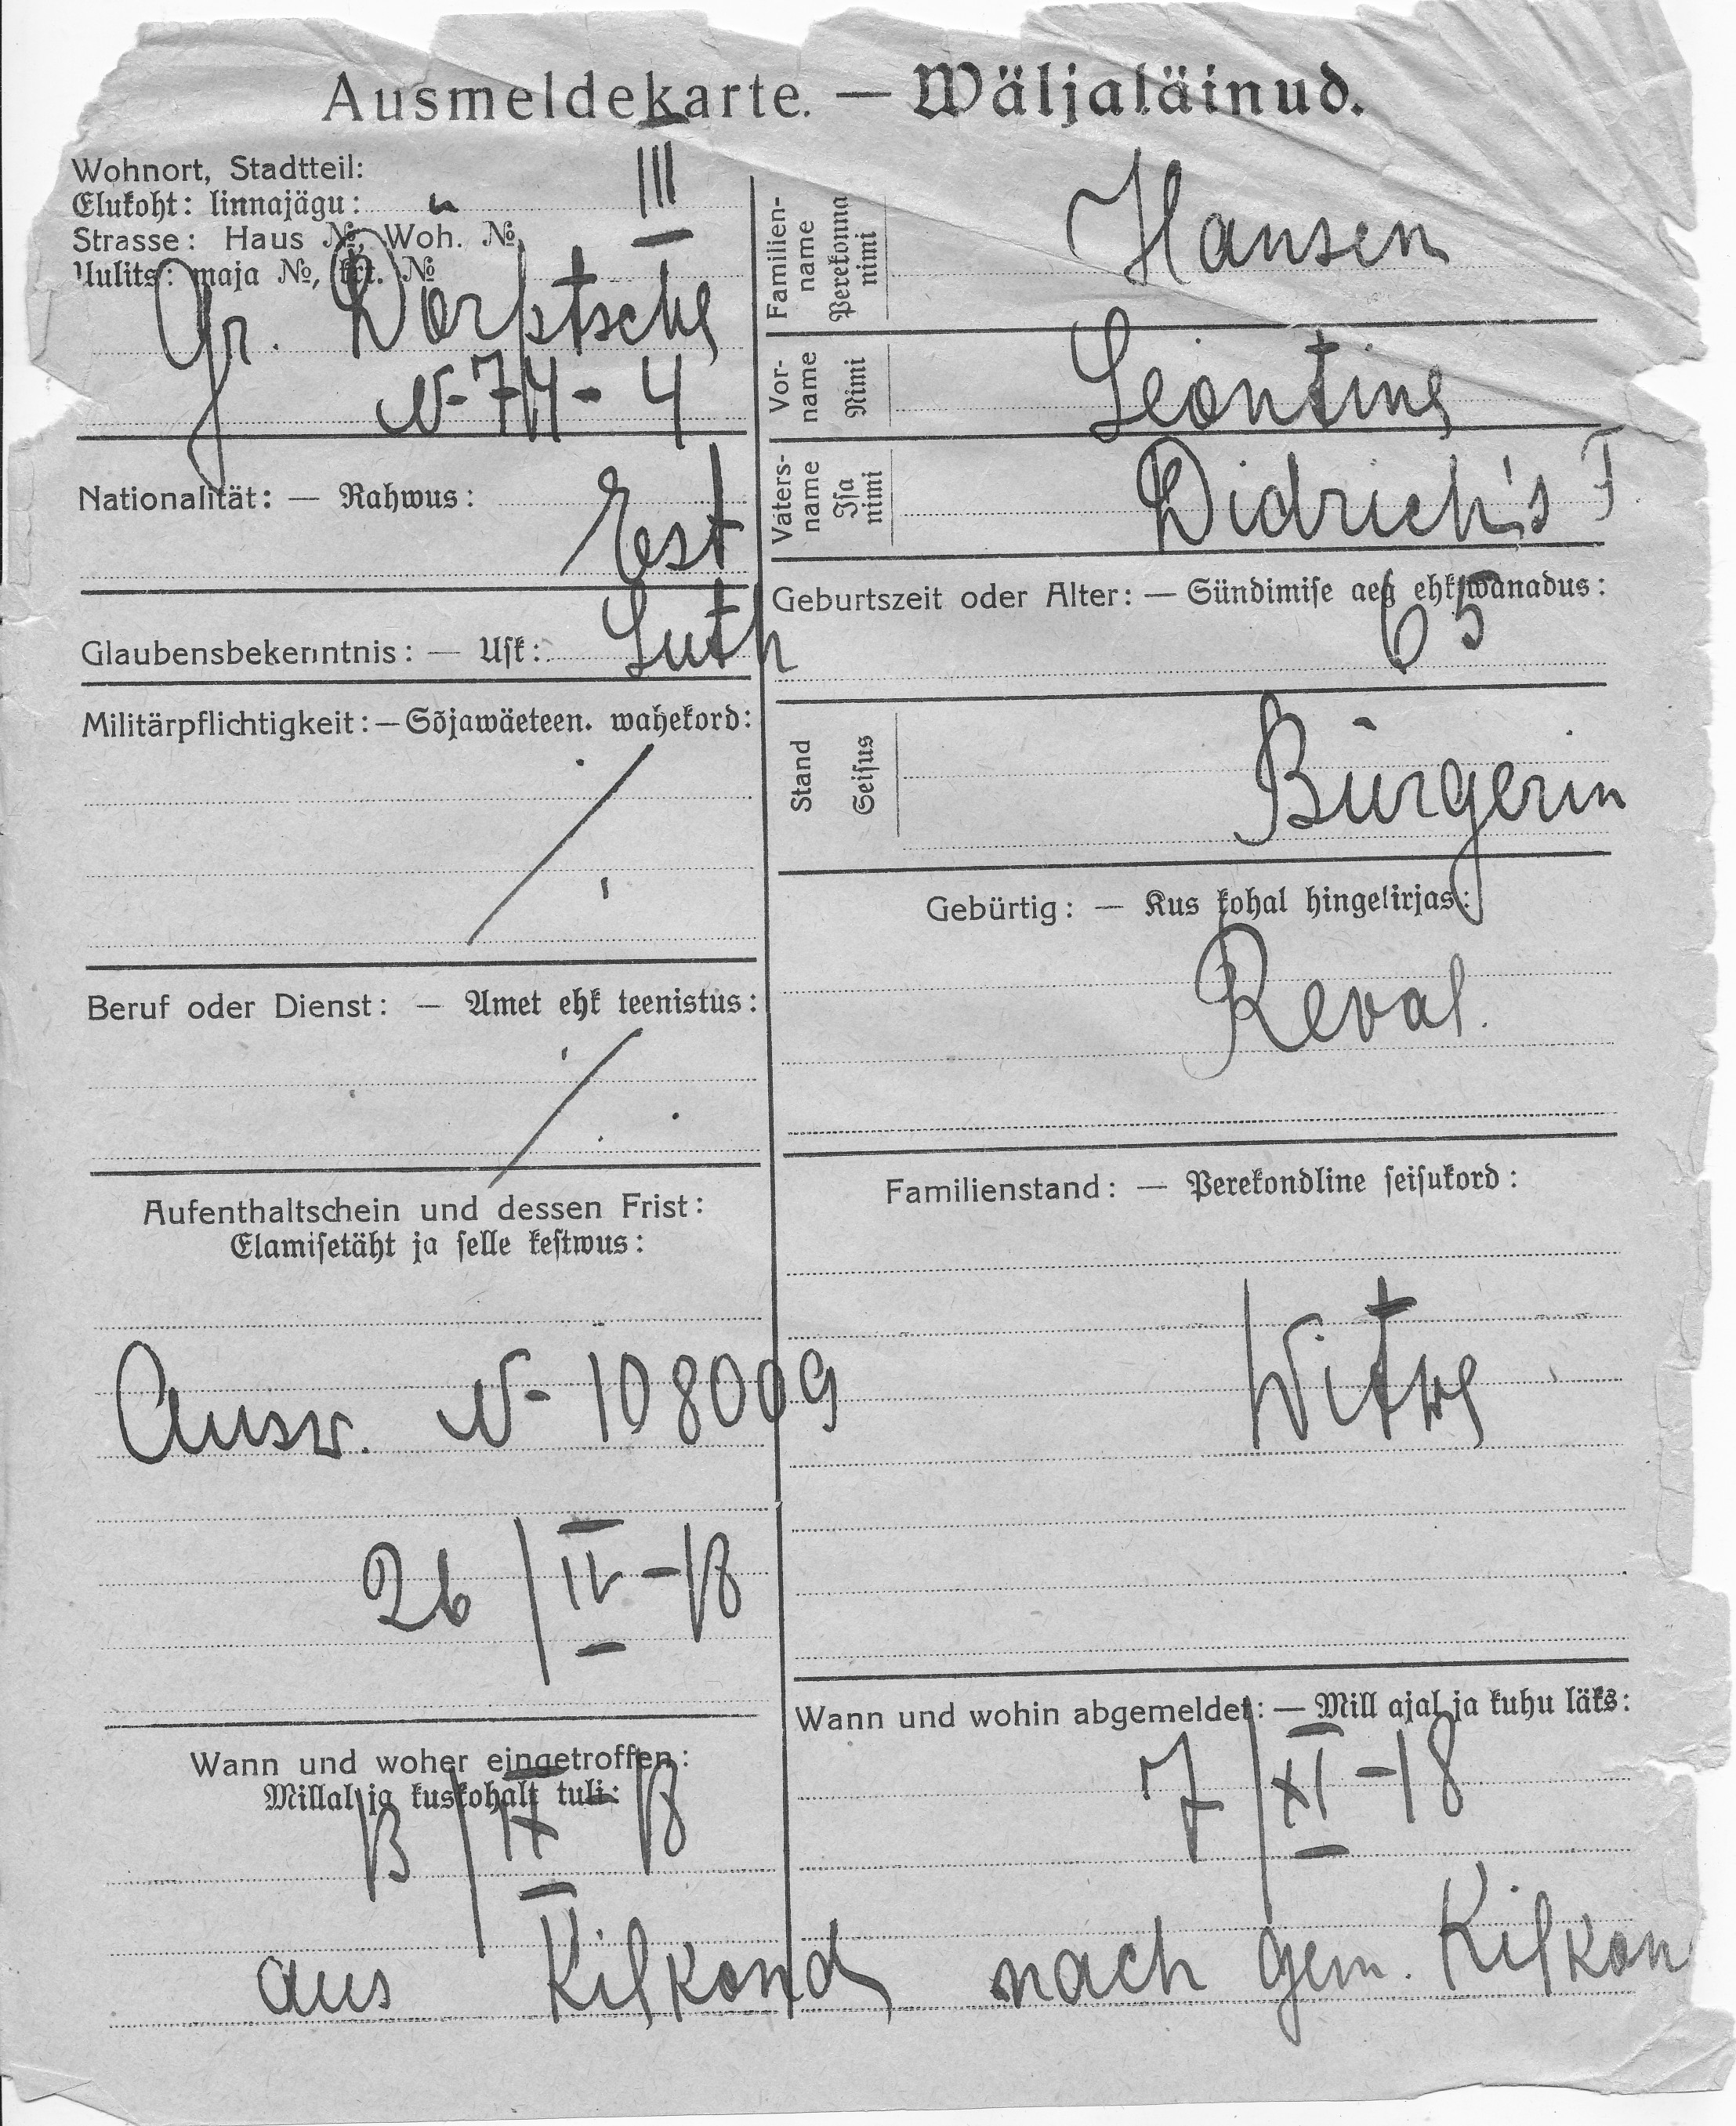 Ausmeldekarte. — Wäljaläinud.
Wohnort, Stadtteil:
Elukoht: linnajägu: III
Strasse: Haus №, Woh. №,
Uulits: maja №, krt. №
Gr. Dorptsche
N- 74 - 4
Nationalität: — Rahwus:
Est
Glaubensbekenntnis: — Usk: Luth
Militärpflichtigkeit: — Sõjawäeteen. wahekord:
Beruf oder Dienst: — Amet ehk teenistus:
Aufenthaltschein und dessen Frist:
Elamisetäht ja selle kestwus:
Ausw. N- 108009
26 / IV - 18
Wann und woher eingetroffen:
Millal ja kuskohalt tuli:
13 / IX 18
aus Kilkond
Familien-name Perekonna nimi Hansen
Vor-name Nimi Leontine
Vaters-name Isa nimi Didrich's T
Geburtszeit oder Alter: — Sündimise aeg ehk wanadus:
65
Stand Seisus Bürgerin
Gebürtig: — Kus kohal hingekirjas:
Reval.
Familienstand: — Perekondline seisukord:
Witwe
Wann und wohin abgemeldet: — Mill ajal ja kuhu läks:
7 / XI - 18
nach gem. Kilkon